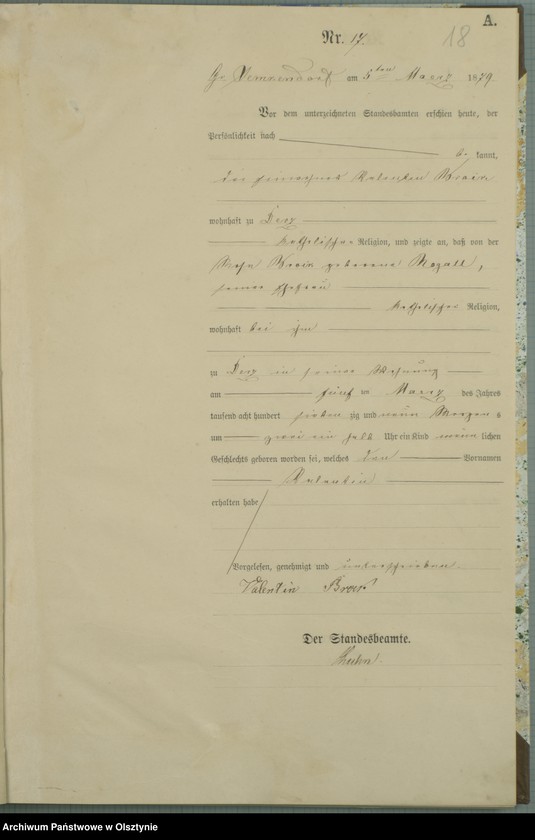 A.
Nr. 17.
18
Gr. am 5ten Maerz 1879.
Vor dem unterzeichneten Standesbamten erschien heute, der
Persönlichkeit nach
be kannt,
der Valentin
wohnhaft zu Derz
katholischer Religion, und zeigte an, daß von der
geborene Rogall,
seiner Ehefrau
katholischer Religion,
wohnhaft bei ihm
zu Derz in seiner Wohnung
am fünf ten Maerz des Jahres
tausend acht hundert sieben zig und neun Morgens
um zwei ein halb Uhr ein Kind männ lichen
Geschlechts geboren worden sei, welches den Vornamen
Valentin
erhalten habe
Vorgelesen, genehmigt und unterschrieben.
Valentin
Der Standesbeamte.
Archiwum Państwowe w Olsztynie